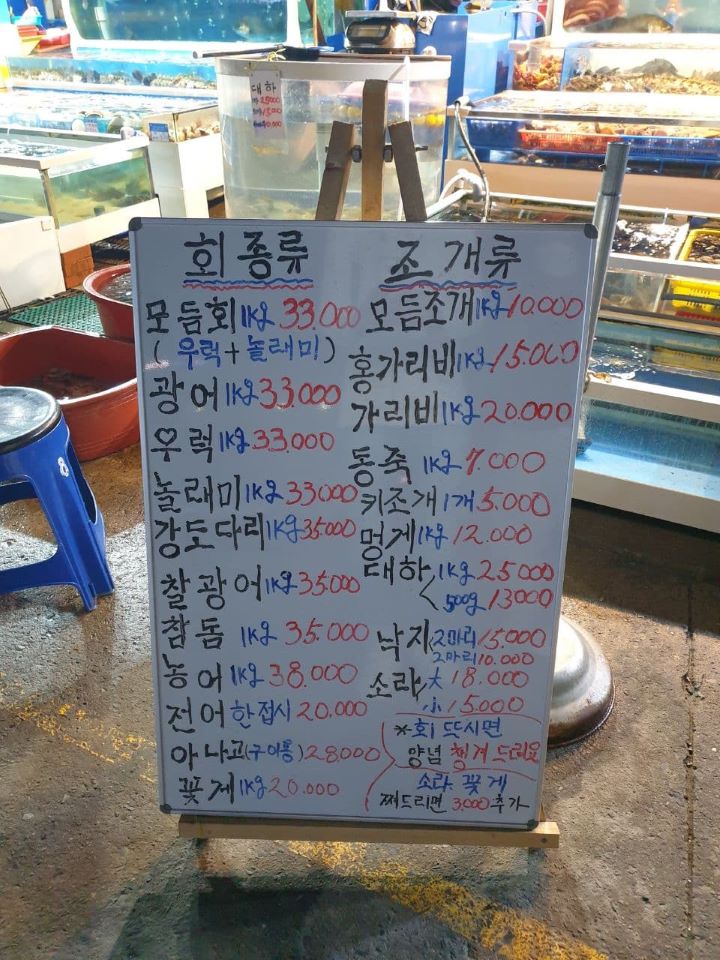 대하
회종류
모듬회 1kg 33.000
(우럭+놀래미)
광어 1kg 33.000
우럭 1kg 33.000
놀래미 1kg 33000
강도다리 1kg 35000
찰광어 1kg 35.000
참돔 1kg 35.000
농어 1kg 38.000
전어 한접시 20.000
아나고(구이용) 28.000
꽃게 1kg 20.000
조개류
모듬조개 1kg 10.000
홍가리비 1kg 15.000
가리비 1kg 20.000
동죽 1kg 7.000
키조개 1개 5.000
멍게 1kg 12.000
대하 1kg 25000
500g 13000
낙지 2마리 15.000
2마리 10.000
소라 大 18.000
小 15.000
*회 뜨시면
양념 챙겨 드려요
소라 꽃게
쪄드리면 3.000 추가
8